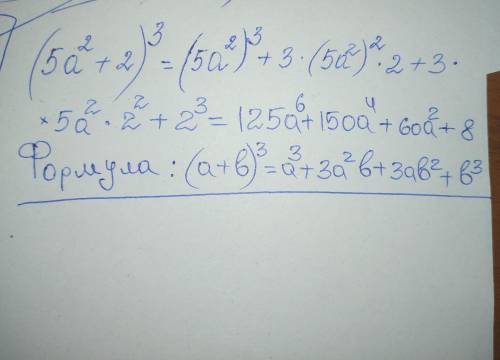 (5a²+2)³=(5a²)³+3·(5a²)²·2+3·
×5a²·2²+2³=125a⁶+150a⁴+60a²+8
Формула: (a+b)³=a³+3a²b+3ab²+b³